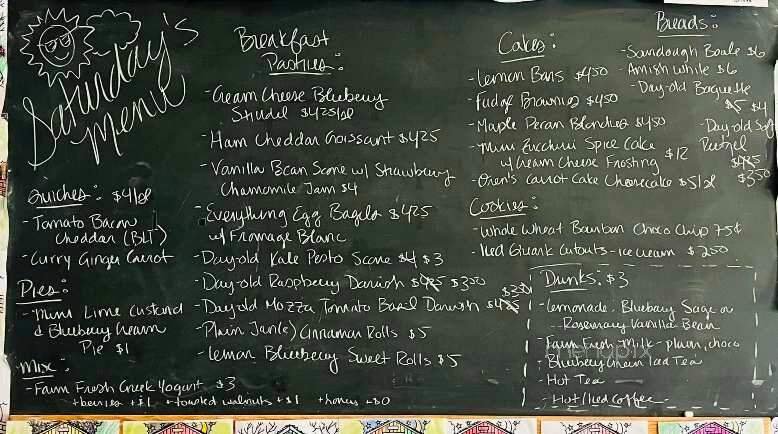 Saturday's
Menu
Quiches: $4/sl
- Tomato Bacon
Cheddar (BLT)
- Curry Ginger Carrot
Pies:
- Mini Lime Custard
& Blueberry Cream
Pie $1
Mix:
- Farm Fresh Greek Yogurt $3
+berries +$1 +toasted walnuts +$1 +honey +$0
Breakfast
Pastries:
- Cream Cheese Blueberry
Strudel $4.25/sl
- Ham Cheddar Croissant $4.25
- Vanilla Bean Scone w/ Strawberry
Chamomile Jam $4
- Everything Egg Bagels $4.25
w/ Fromage Blanc
- Day-old Kale Pesto Scone $4 $3
- Day-old Raspberry Danish $4.25 $3.00
- Day old Mozza, Tomato Basil Danish $4.25 $3.00
- Plain Jan(e) Cinnamon Rolls $5
- Lemon Blueberry Sweet Rolls $5
Cakes:
- Lemon Bars $4.50
- Fudge Brownies $4.50
- Maple Pecan Blondies $4.50
- Mini Zucchini Spice Cake
w/ Cream Cheese Frosting $12
- Oren's Carrot Cake Cheesecake $5/sl
Cookies:
- Whole Wheat Bourbon Choco Chip 75¢
- Iced Cutouts - ice cream $2.00
Breads:
- Sourdough Boule $6
- Amish White $6
- Day-old Baguette
$5 $4
- Day-old Soft
Pretzel
$4.25
$3.50
Drinks: $3
- Lemonade: Blueberry Sage or
Rosemary Vanilla Bean
- Farm Fresh Milk - plain, choco
- Blueberry Iced Tea
- Hot Tea
- Hot/Iced Coffee
menupix